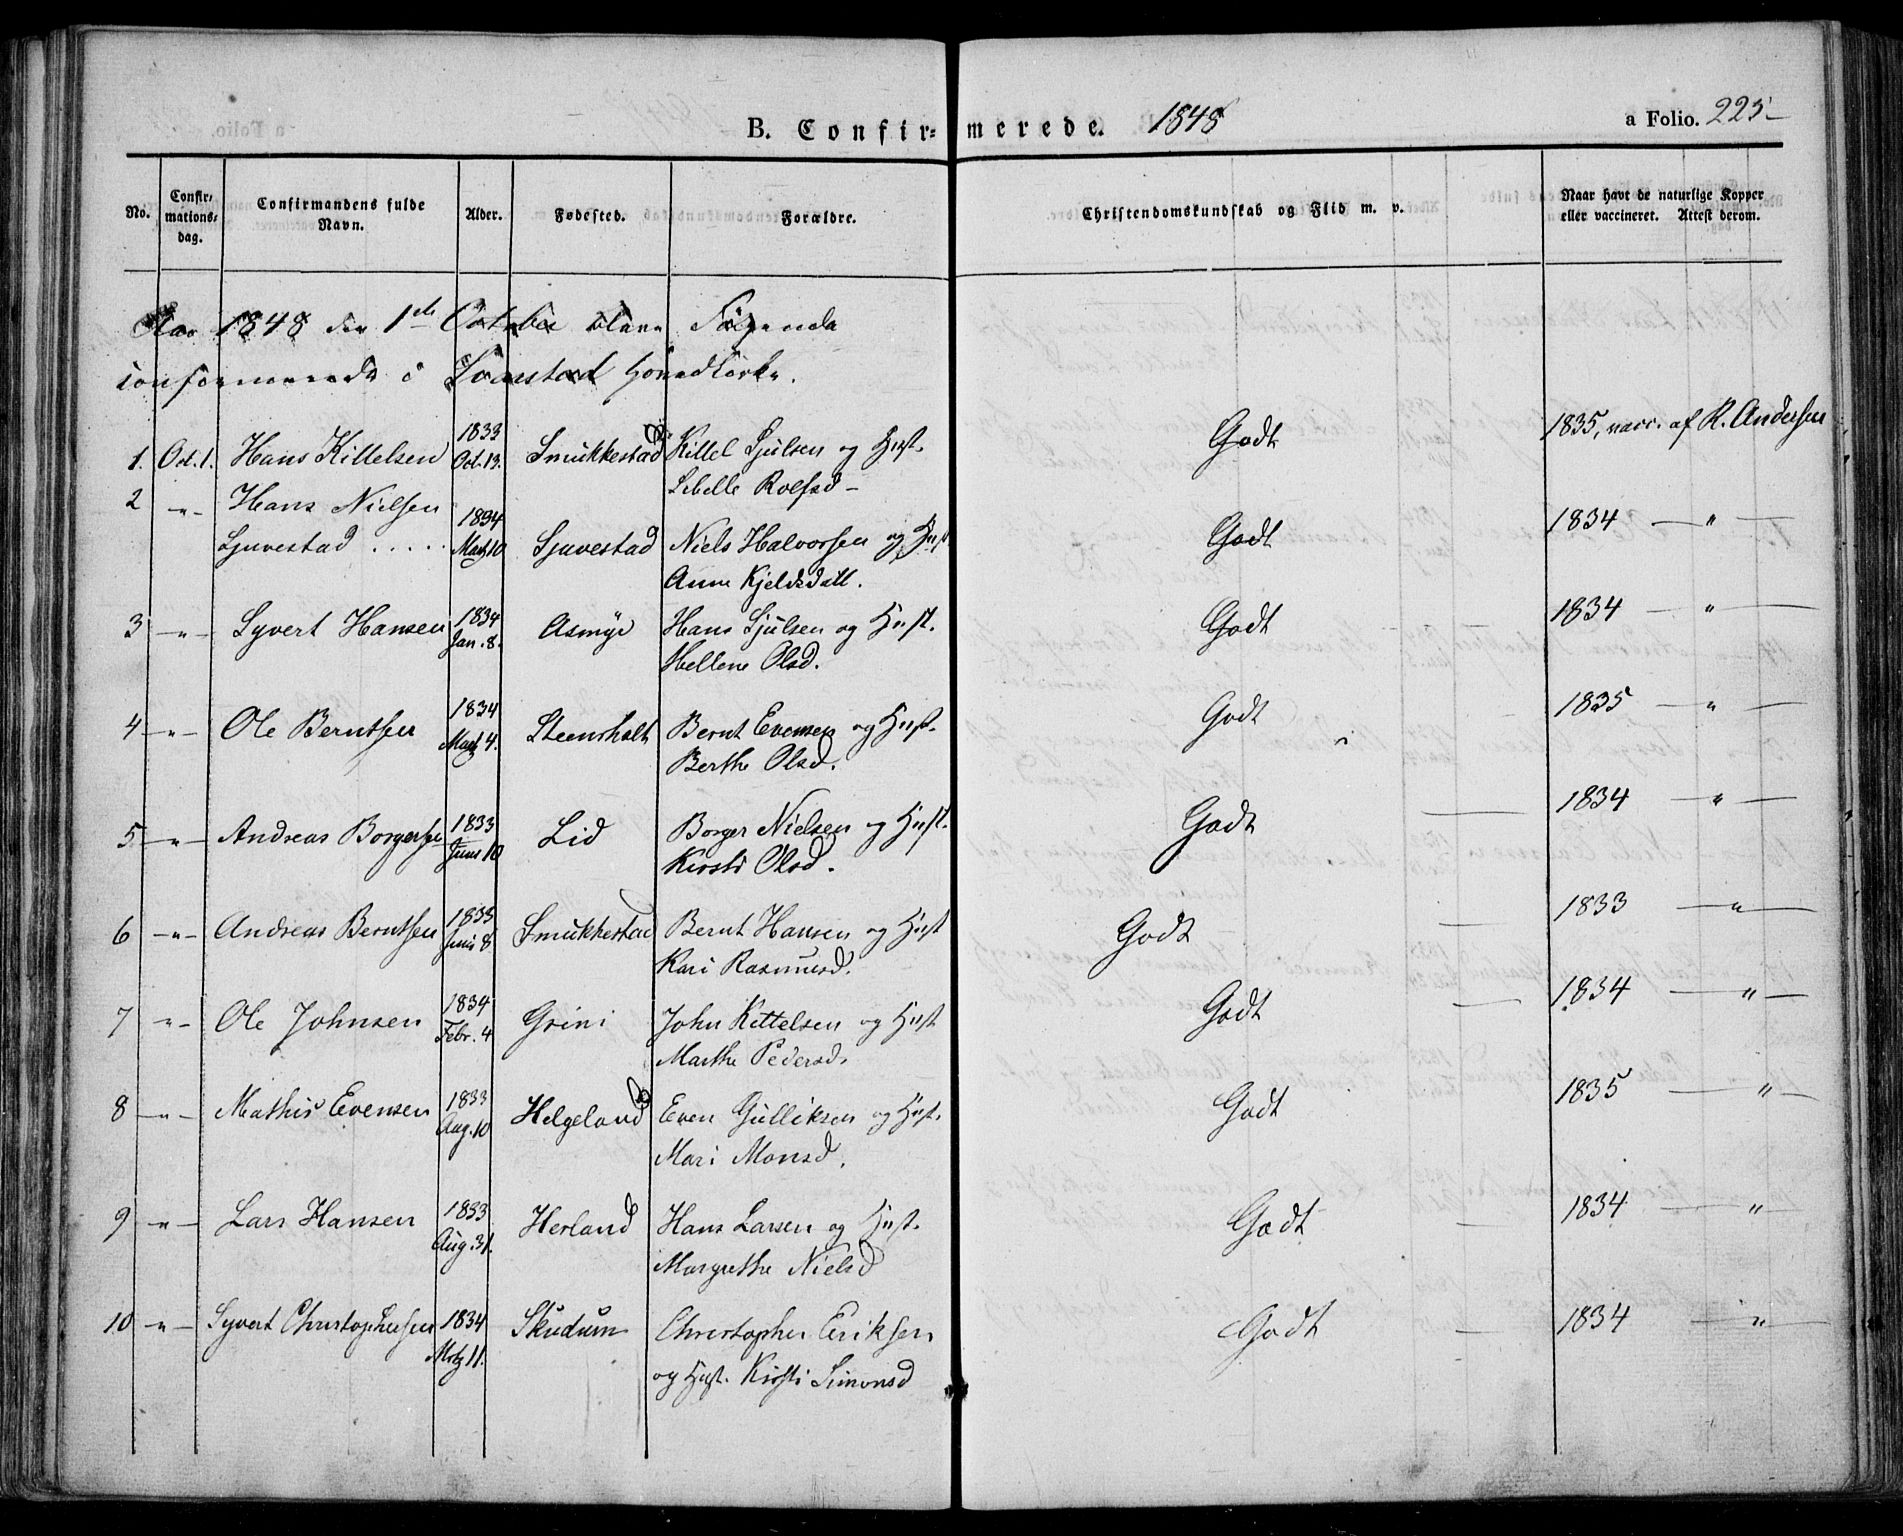 B. Confirmerede. 1848 a Folio. 225
No. Confirmationsdag. Confirmandens fulde Navn. Alder. Fødested. Forældre. Christendomskundskab og Flid m. v. Naar havt de naturlige Kopper eller vaccineret. Attest derom.
Aar 1848 den 1ste October bleve Følgende
confirmerede i Hovedkirke.
1. Oct. 1. Hans Kittelsen 1833 Oct. 13. Smukkestad Kittel Sjulsen og Hust. Godt 1835, vacc. af R. Andersen
Sibelle Rolfsd
2 -"- Hans Nielsen
Sjuvestad ..... 1834 Martz 10 Sjuvestad Niels Halvorsen og Hust Godt 1834 — " —
Anne Kjeldsdatt.
3 -"- Syvert Hansen 1834 Jan. 8. Asmyr Hans Sjulsen og Hust. Godt 1834 — " —
Hellene Olsd.
4 -"- Ole Berntsen 1834 Martz 4. Steensholt Bernt Evensen og Hust. Godt 1835 — " —
Berthe Olsd.
5 -"- Andreas Borgersen 1833 Juni 10 Lid Borger Nielsen og Hust. Godt — 1834 — " —
Kirsti Olsd.
6 -"- Andreas Berntsen 1833 Juni 8 Smukkestad Bernt Hansen og Hust Godt — 1833 — " —
Kari Rasmusd.
7 -"- Ole Johnsen 1834 Febr. 4 Grini John Kittelsen og Hust Godt — 1834 — " —
Marthe Pedersd.
8 -"- Mathis Evensen 1833 Aug. 10 Helgeland Even Gulliksen og Hust. Godt 1835 — " —
Mari Monsd.
9 -"- Lars Hansen 1833 Aug. 31. Herland Hans Larsen og Hust. Godt — 1834 — " —
Margrethe Nielsd
10 -"- Syvert Christophersen 1834 Mrtz 11. Skudum Christopher Eriksen Godt — 1834 — " —
og Hust. Kirsti Simonsd